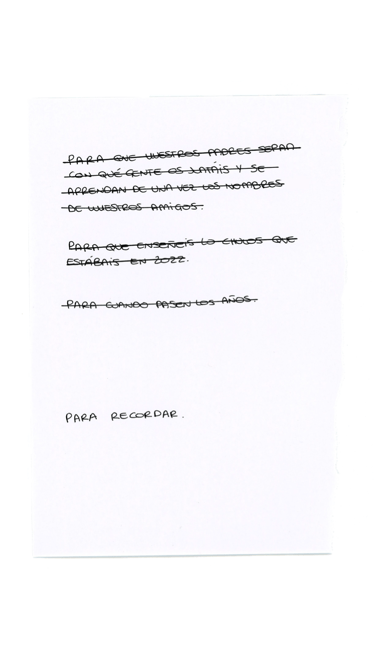 PARA QUE VUESTROS PADRES SEPAN
CON QUÉ GENTE OS JUTÁIS Y SE
APRENDAN DE UNA VEZ LOS NOMBRES
DE VUESTROS AMIGOS.
PARA QUE ENSEÑEIS LO CHULOS QUE
ESTÁBAIS EN 2022.
PARA CUANDO PASEN LOS AÑOS.
PARA RECORDAR.